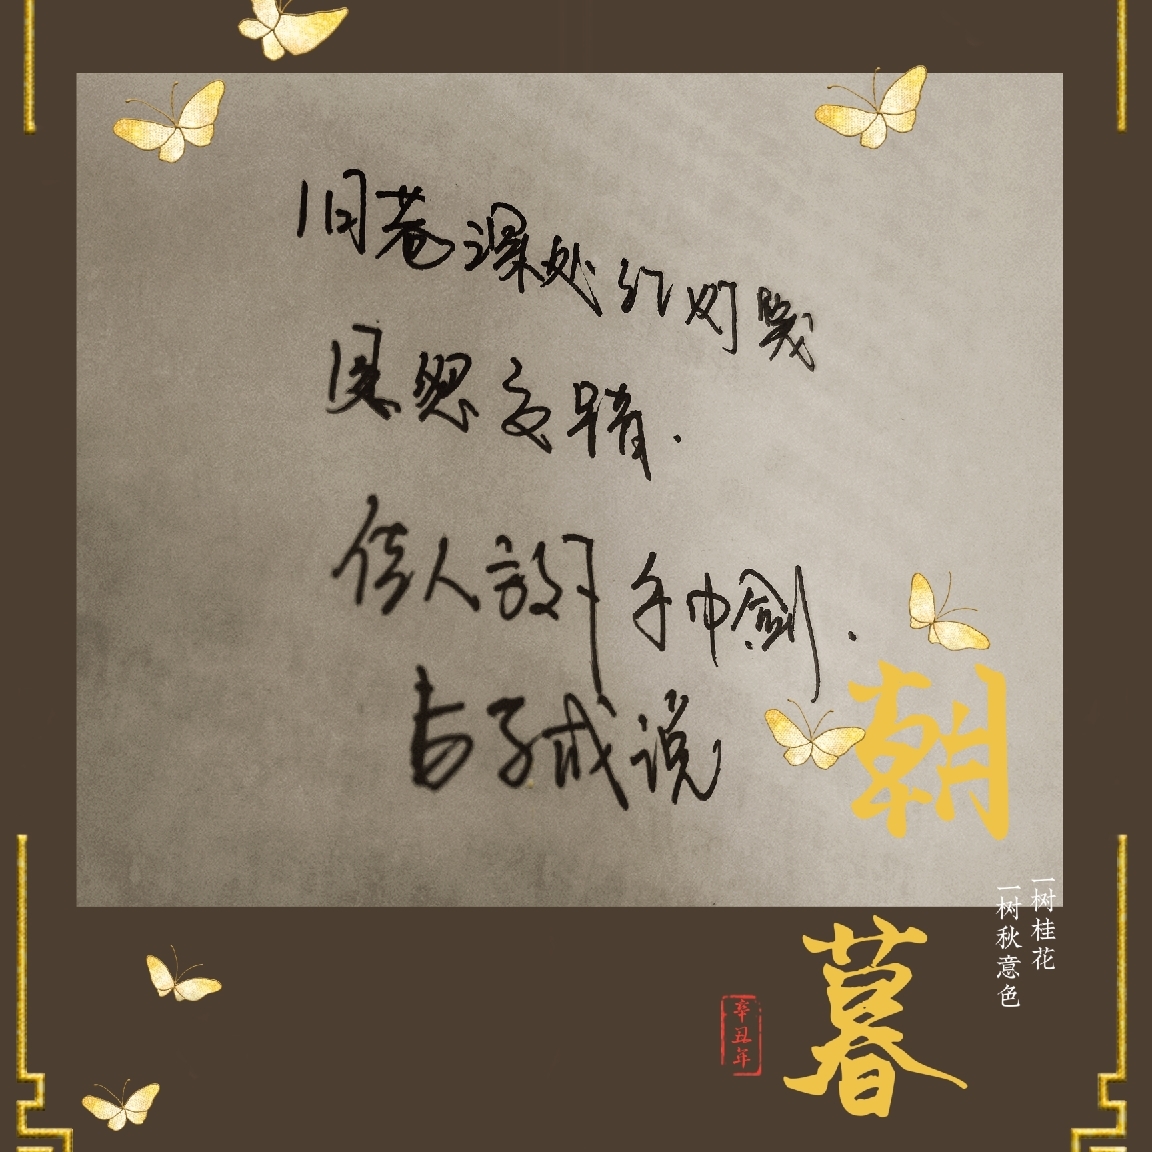 旧巷深处红
恩怨交错.
佳人放下手中剑.
与子成说
朝
暮
一树桂花
一树秋意色
辛丑年